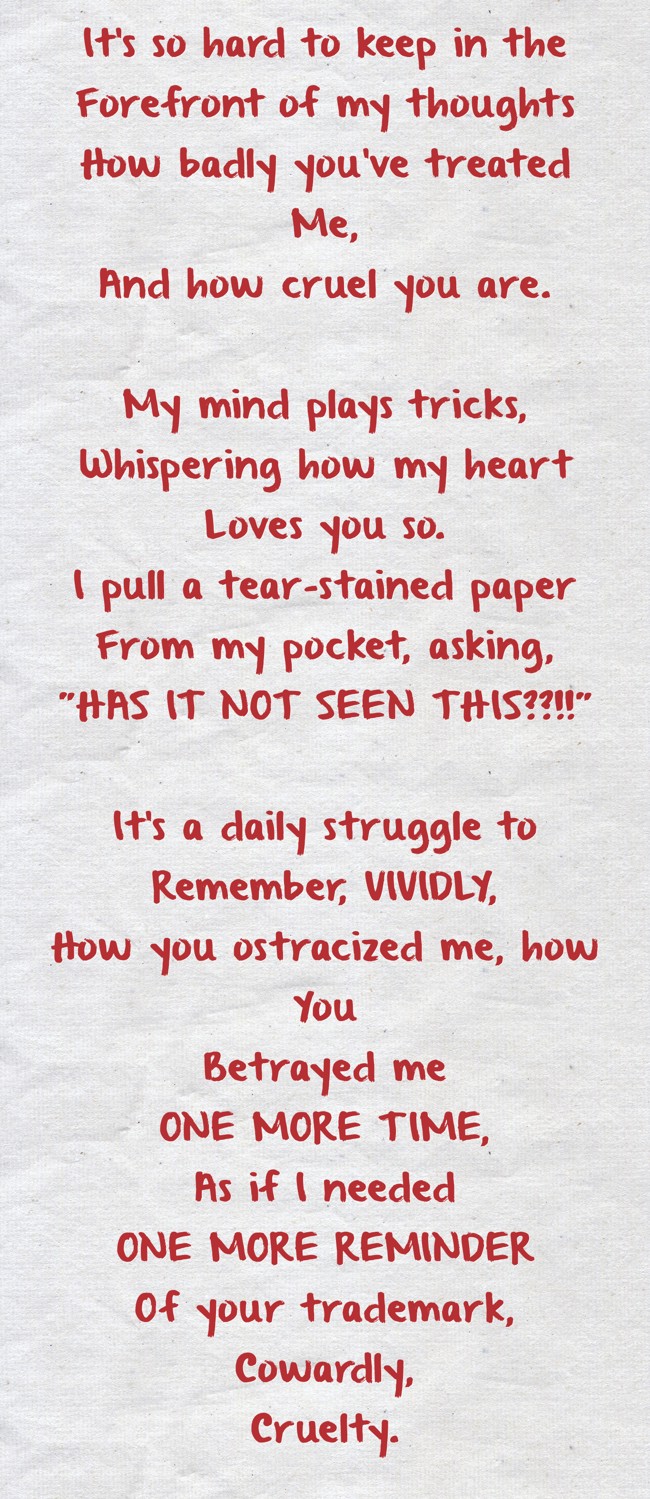 It's so hard to keep in the
Forefront of my thoughts
How badly you've treated
Me,
And how cruel you are.
My mind plays tricks,
Whispering how my heart
Loves you so.
I pull a tear-stained paper
From my pocket, asking,
"HAS IT NOT SEEN THIS??!!"
It's a daily struggle to
Remember, VIVIDLY,
How you ostracized me, how
You
Betrayed me
ONE MORE TIME,
As if I needed
ONE MORE REMINDER
Of your trademark,
Cowardly,
Cruelty.